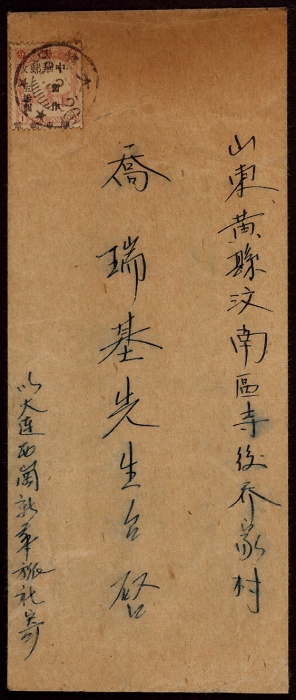 山東黃縣汶南區寺後乔家村
喬瑞基先生台啓
以大连西崗新華旅社寄
中華郵政